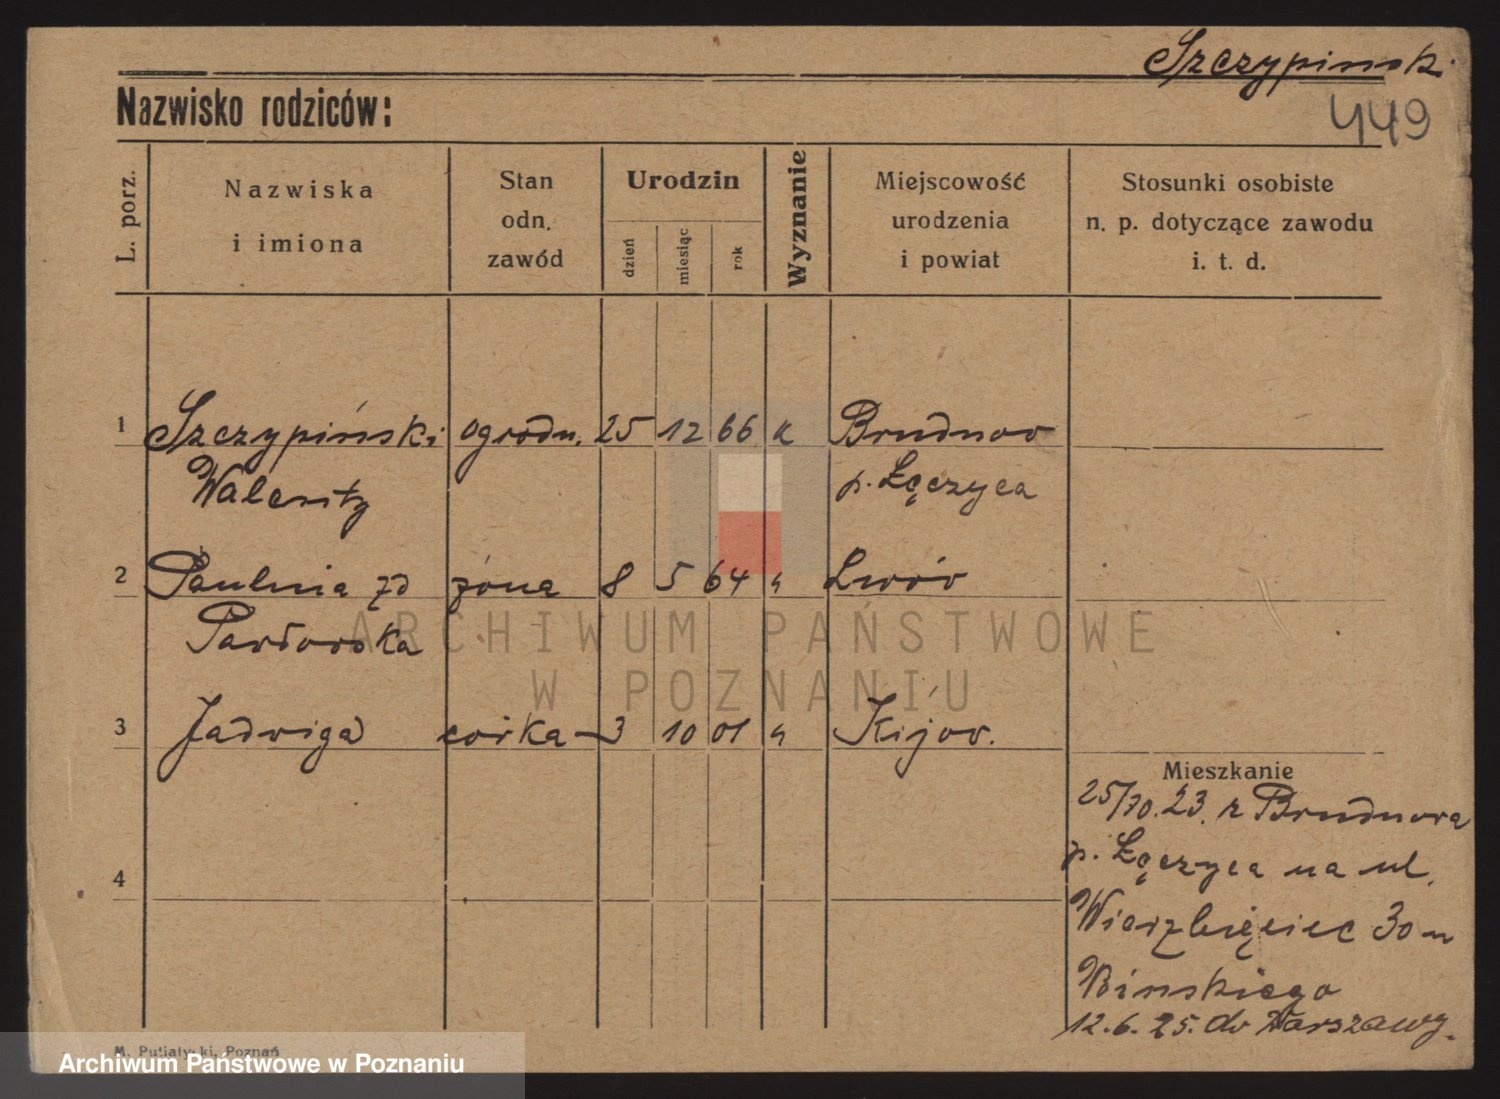 Szczypinski
Nazwisko rodziców:
449
L. porz.
Nazwiska
i imiona
Stan
odn.
zawód
Urodzin
dzień
miesiąc
rok
Wyznanie
Miejscowość
urodzenia
i powiat
Stosunki osobiste
n. p. dotyczące zawodu
i. t. d.
1 Szczypiński ogrodn. 25 12 66 k Brudnow
Walenty p. Łęczyca
2 Paulina zd żona 8 5 64 Lwów
ARCHIWUM PAŃSTWOWE
W POZNANIU
3 Jadwiga córka 3 10 01 Kijow.
Mieszkanie
25/10.23. z Brudnowa
p. Łęczyca na ul.
Wierzbięcic 30 u
Binskiego
12.6.25. do Warszawy.
4
M. Putiatycki, Poznań
Archiwum Państwowe w Poznaniu